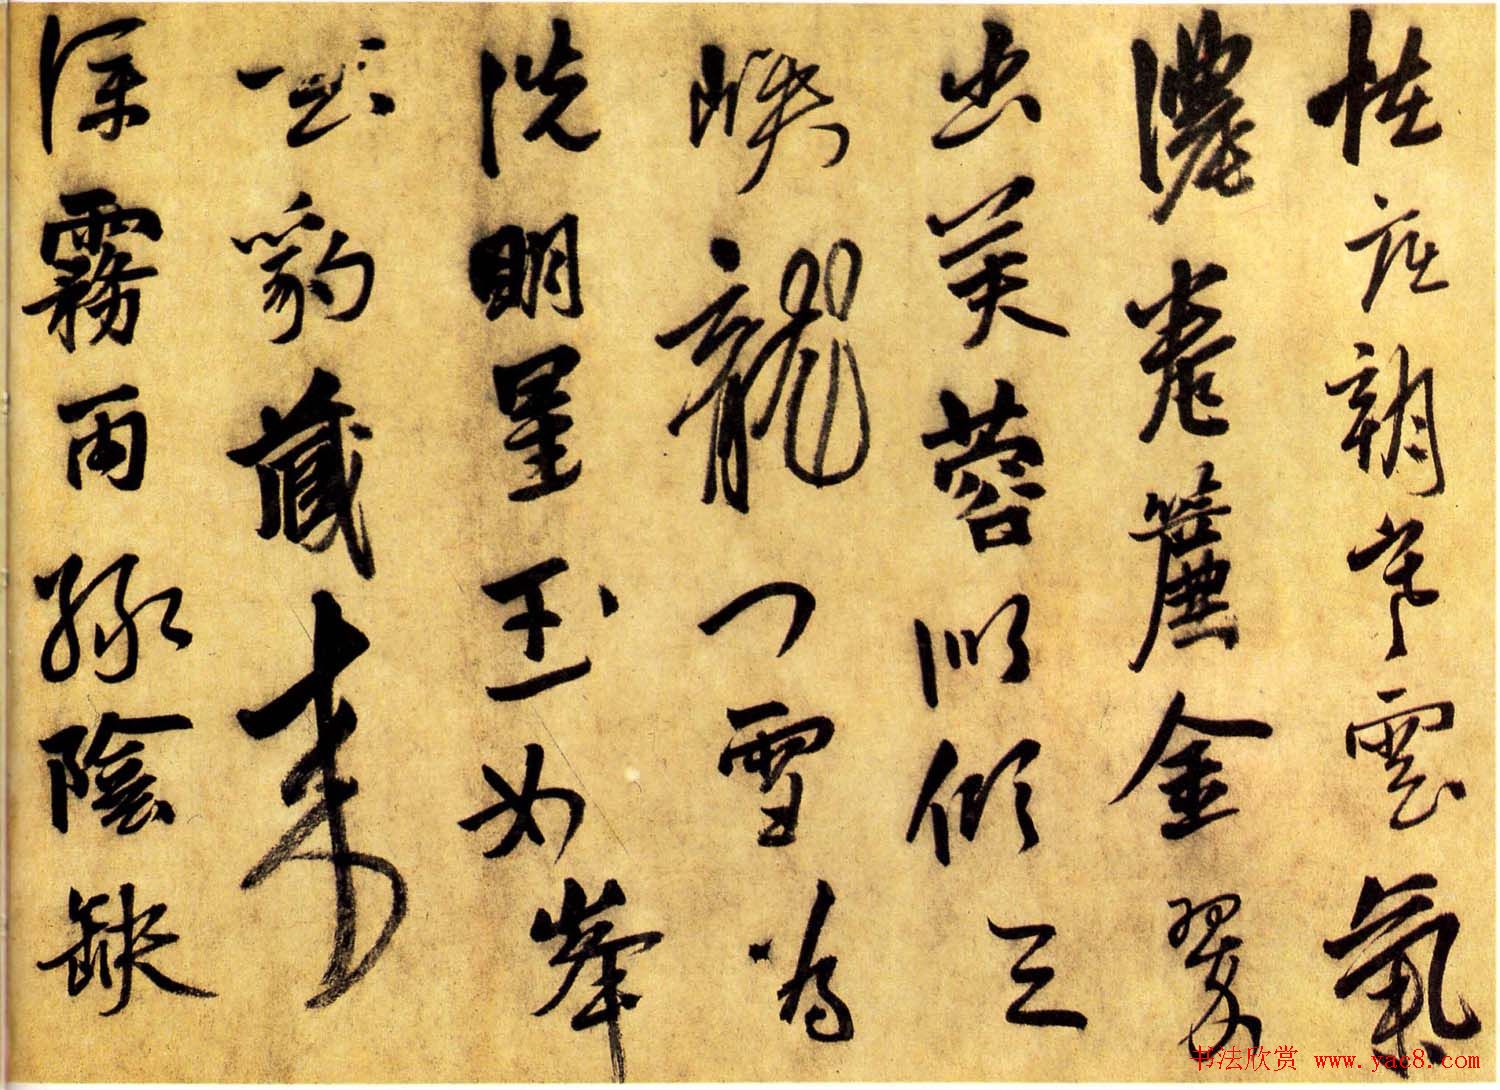 怪底朝來雲氣
濃卷簾金翠
出芙蓉似傾三
峽龍門雪為
洗明星玉女峯
豹藏來
深霧雨綠陰缺
书法欣赏 www.yac8.com